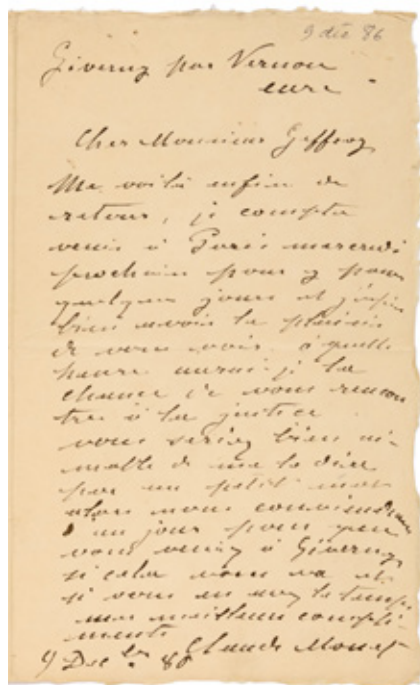 9 déc 86
Giverny par Vernon
eure
Cher Monsieur Geffroy
Me voilà enfin de
retour, je compte
venir à Paris mercredi
prochain pour y passer
quelques jours et j'espère
bien avoir le plaisir
de vous voir. à quelle
heure aurai-je la
chance de vous rencon
trer à la justice
vous seriez bien ai
mable de me le dire
par un petit mot
alors nous conviendrons
d'un jour pour que
vous veniez à Giverny
si cela vous va et
si vous en avez le temps
mes meilleurs compli
ments
Claude Monet
9 Dec bre 86